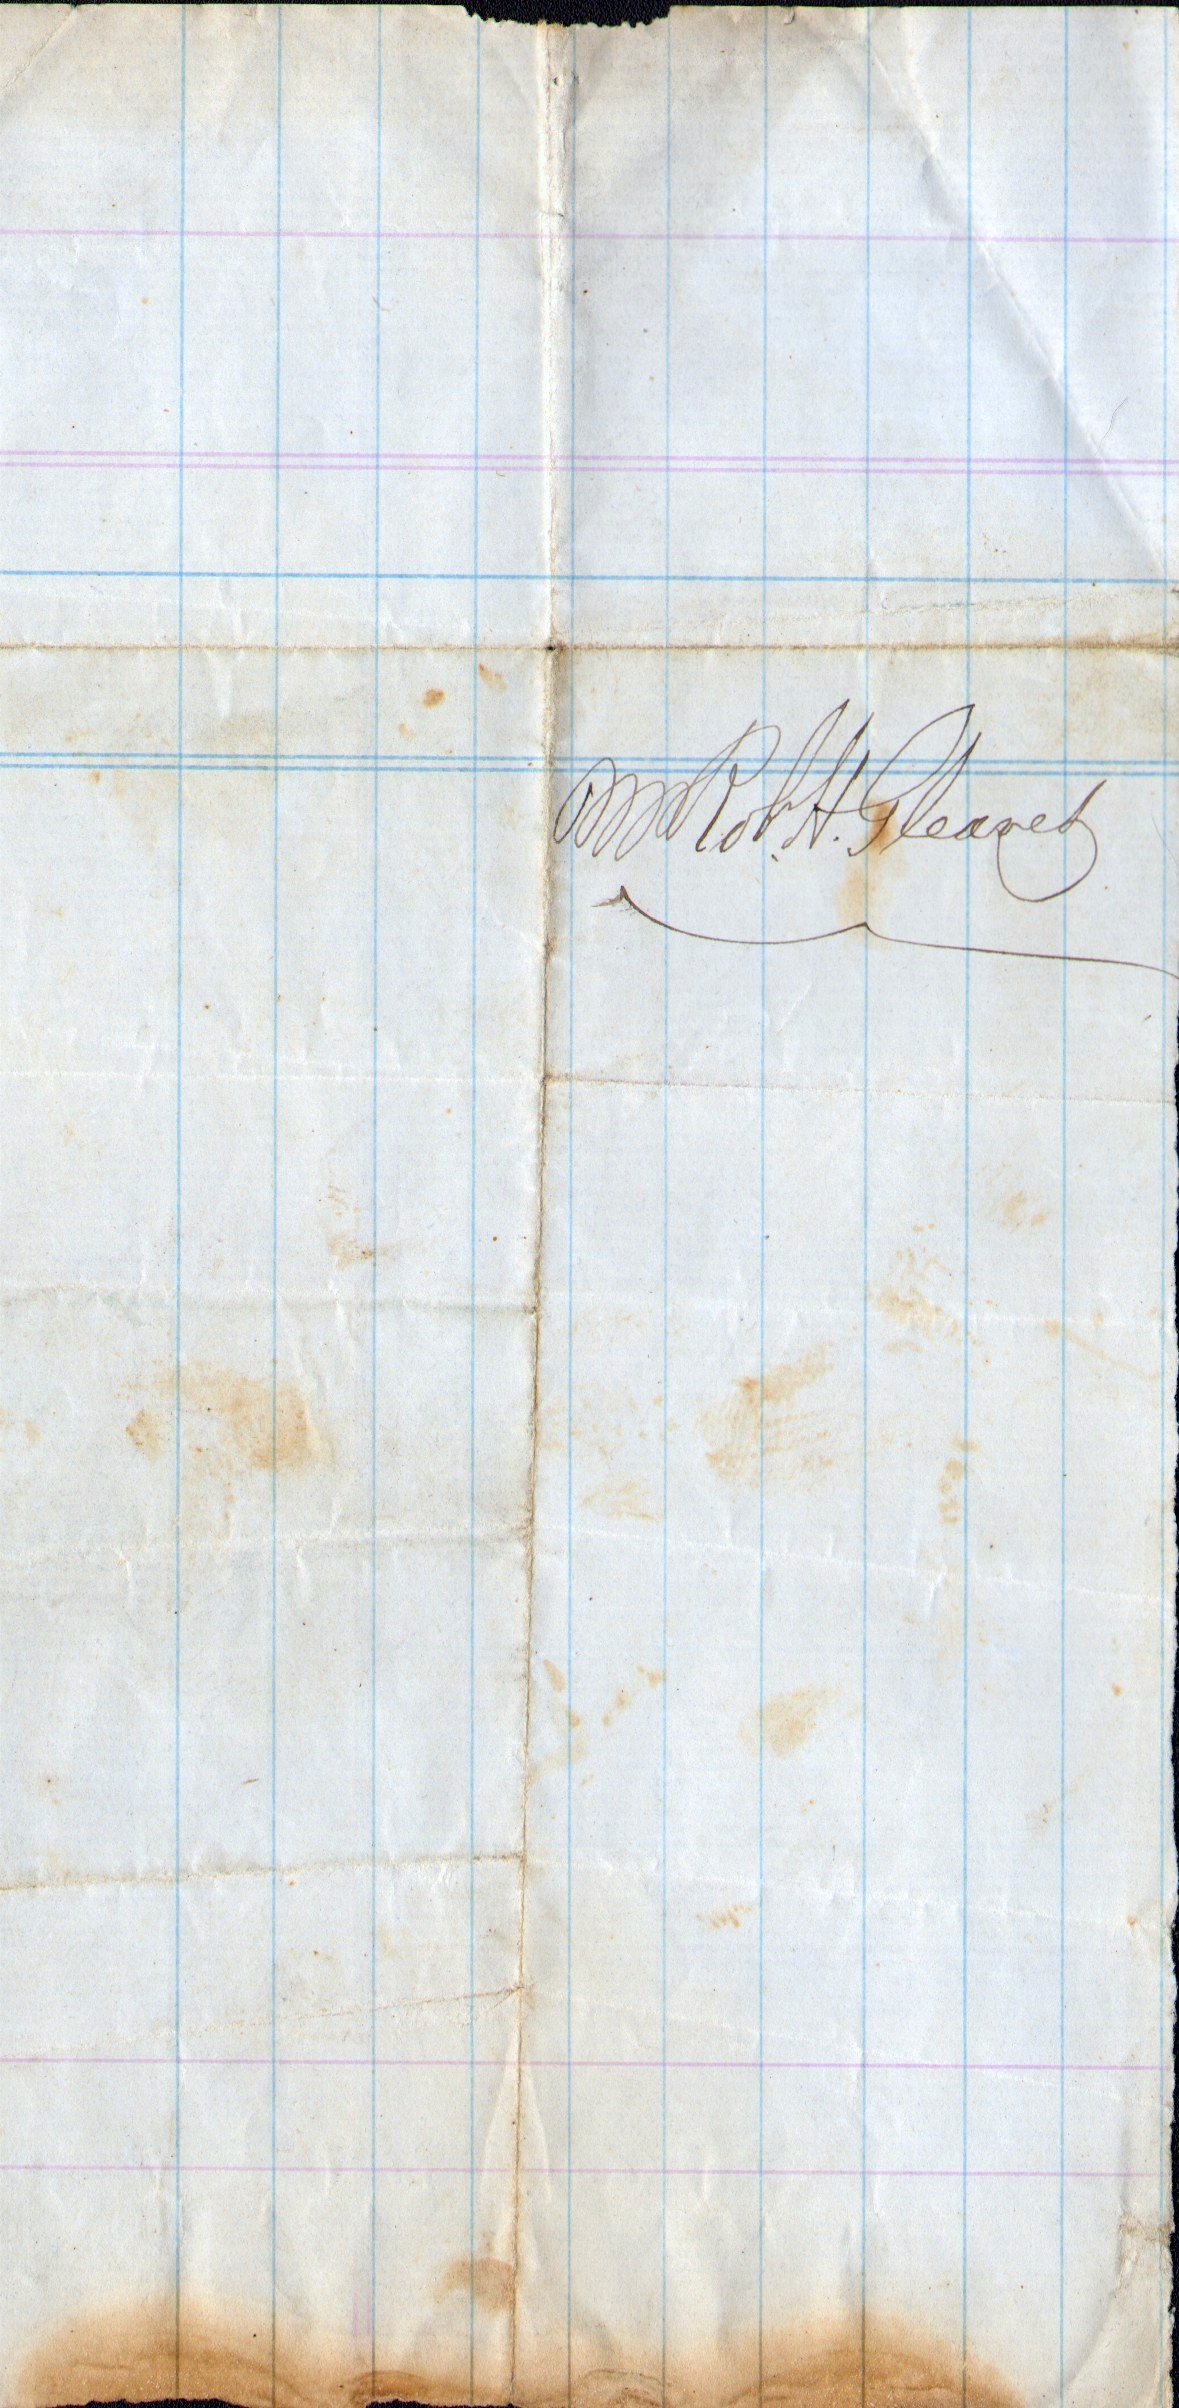 Rob. H. Gleaves